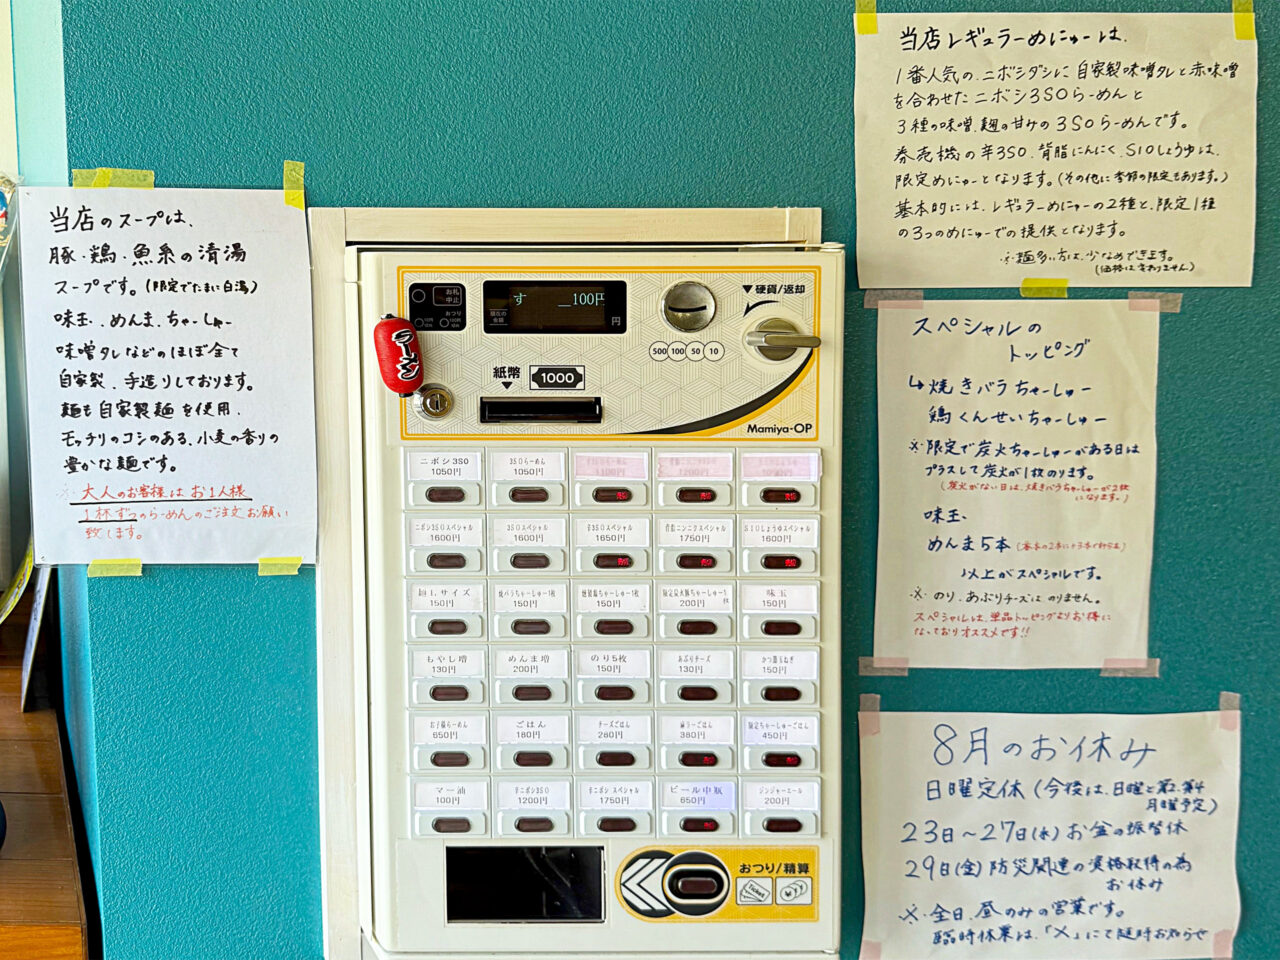 当店のスープは、
豚・鶏・魚系の清湯
スープです。(限定でたまに白湯)
味玉、めんま、ちゃーしゅー
味噌タレなどのほぼ全て
自家製、手造りしております。
麺も自家製麺を使用、
モッチリのコシのある、小麦の香りの
豊かな麺です。
※大人のお客様はお1人様
1杯ずつのらーめんのご注文お願い
致します。
お札
中止
おつり
10円
切れ
100円
切れ
現在の
金額
す __100円
円
▼硬貨/返却
500 100 50 10
らーめん
紙幣
▼
1000
Mamiya-OP
ニボシ3SO
1050円
3SOらーめん
1050円
1100円
1200円
1050円
売切
売切
売切
ニボシ3SOスペシャル
1600円
3SOスペシャル
1600円
辛3SOスペシャル
1650円
背脂ニンニクスペシャル
1750円
SIOしょうゆスペシャル
1600円
売切
売切
売切
麺Lサイズ
150円
焼バラちゃーしゅー1枚
150円
150円
200円
味玉
150円
もやし増
130円
めんま増
200円
のり5枚
150円
あぶりチーズ
130円
かつ節玉ねぎ
150円
お子様らーめん
650円
ごはん
180円
チーズごはん
280円
380円
限定ちゃーしゅーごはん
450円
売切
売切
マー油
100円
辛ニボシ3SO
1200円
辛ニボシスペシャル
1750円
ビール中瓶
650円
ジンジャーエール
200円
売切
おつり/精算
Ticket
当店レギュラーめにゅーは、
1番人気の、ニボシダシに自家製味噌タレと赤味噌
を合わせたニボシ3SOらーめんと
3種の味噌、麹の甘みの3SOらーめんです。
券売機の辛3SO、背脂にんにく、SIOしょうゆは、
限定めにゅーとなります。(その他に季節の限定もあります。)
基本的には、レギュラーめにゅーの2種と、限定1種
の3つのめにゅーでの提供となります。
※麺多い方は、少なめできます。
(価格は変わりません)
スペシャルの
トッピング
↳焼きバラちゃーしゅー
鶏くんせいちゃーしゅー
※限定で炭火ちゃーしゅーがある日は
プラスして炭火が1枚のります。
(炭火がない日は、焼きバラちゃーしゅーが2枚
になります。)
味玉、
めんま5本
以上がスペシャルです。
※のり、あぶりチーズはのりません。
スペシャルは、単品トッピングよりお得に
なっておりオススメです!!
8月のお休み
日曜定休(今後は、日曜と第2、第4
月曜予定)
23日~27日(水)お盆の振替休
29日(金)防災関連の資格取得の為
お休み
※全日、昼のみの営業です。
臨時休業は、「X」にて随時お知らせ